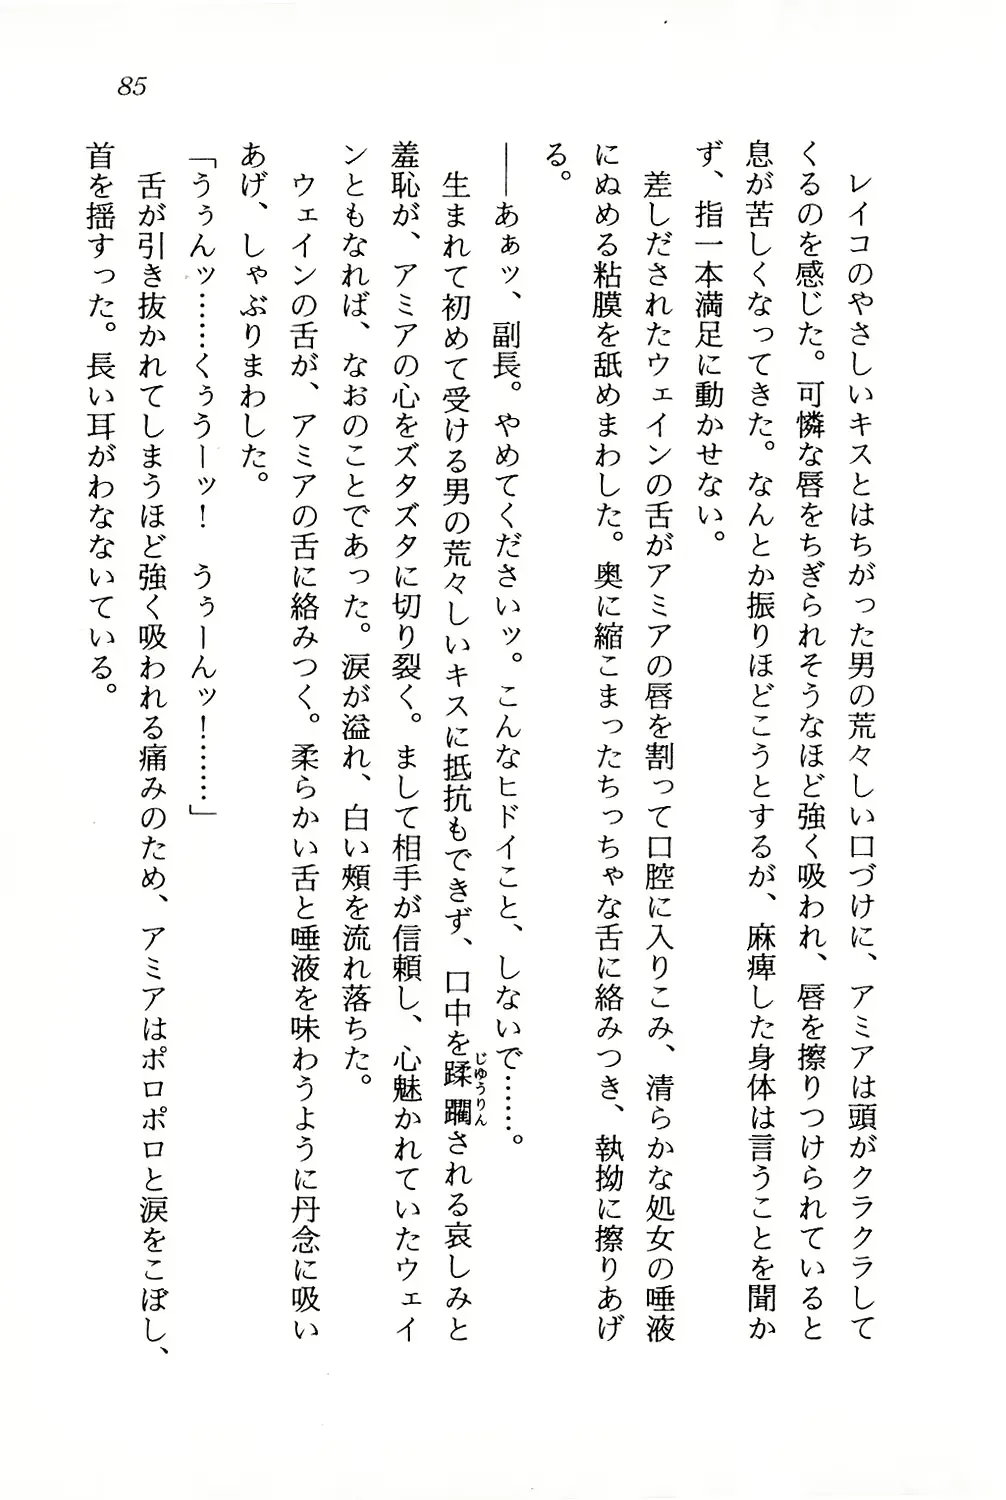 85
レイコのやさしいキスとはちがった男の荒々しい口づけに、アミアは頭がクラクラして
くるのを感じた。可憐な唇をちぎられそうなほど強く吸われ、唇を擦りつけられていると
息が苦しくなってきた。なんとか振りほどこうとするが、麻痺した身体は言うことを聞か
ず、指一本満足に動かせない。
差しだされたウェインの舌がアミアの唇を割って口腔に入りこみ、清らかな処女の唾液
にぬめる粘膜を舐めまわした。奥に縮こまったちっちゃな舌に絡みつき、執拗に擦りあげ
る。
――あぁッ、副長。やめてくださいッ。こんなヒドイこと、しないで……。
生まれて初めて受ける男の荒々しいキスに抵抗もできず、口中を蹂躙される哀しみと
じゆうりん
羞恥が、アミアの心をズタズタに切り裂く。まして相手が信頼し、心魅かれていたウェイ
ンともなれば、なおのことであった。涙が溢れ、白い頬を流れ落ちた。
ウェインの舌が、アミアの舌に絡みつく。柔らかい舌と唾液を味わうように丹念に吸い
あげ、しゃぶりまわした。
「うぅんッ……くぅうーッ！　うぅーんッ！……」
舌が引き抜かれてしまうほど強く吸われる痛みのため、アミアはポロポロと涙をこぼし、
首を揺すった。長い耳がわなないている。